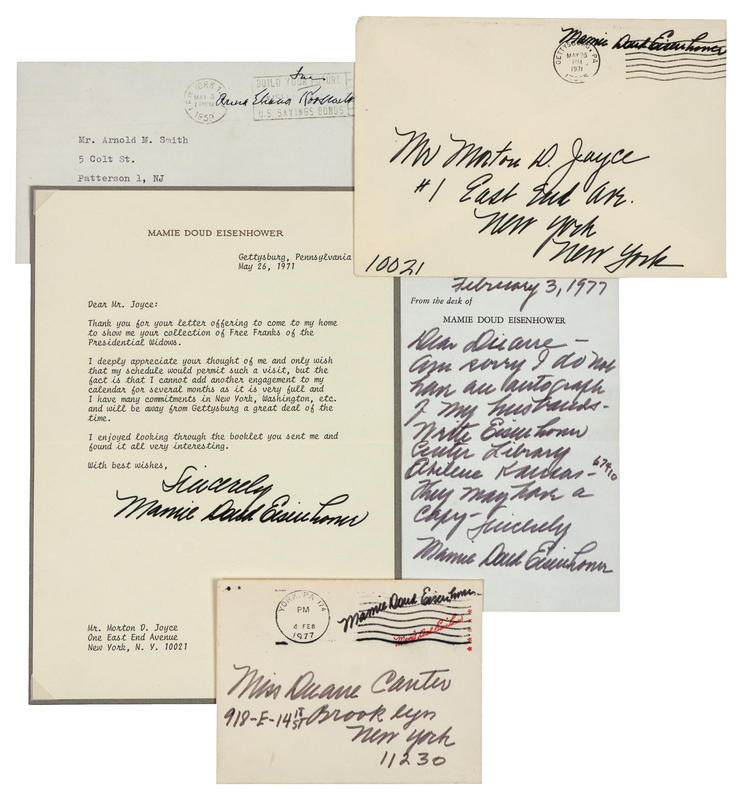 Free
Anna Eleanor Roosevelt
MAY 3
1959
BUILD YOUR FUTURE
U.S. SAVINGS BONDS
Mr. Arnold M. Smith
5 Colt St.
Patterson 1, NJ
Mamie Doud Eisenhower
GETTYSBURG, PA
PM
1971
Mr Morton D. Joyce
#1 East End Ave.
New York
New York
10021
MAMIE DOUD EISENHOWER
Gettysburg, Pennsylvania
May 26, 1971
Dear Mr. Joyce:
Thank you for your letter offering to come to my home
to show me your collection of Free Franks of the
Presidential Widows.
I deeply appreciate your thought of me and only wish
that my schedule would permit such a visit, but the
fact is that I cannot add another engagement to my
calendar for several months as it is very full and
I have many commitments in New York, Washington, etc.
and will be away from Gettysburg a great deal of the
time.
I enjoyed looking through the booklet you sent me and
found it all very interesting.
With best wishes,
Sincerely
Mamie Doud Eisenhower
Mr. Morton D. Joyce
One East End Avenue
New York, N. Y. 10021
February 3, 1977
From the desk of
MAMIE DOUD EISENHOWER
Dear Duane -
am sorry I do not
have an autograph
of my husbands-
Write Eisenhower
Center Library
Abilene Kansas- 67410
They may have a
copy- Sincerely
Mamie Doud Eisenhower
YORK, PA 174
PM
4 FEB
1977
Mamie Doud Eisenhower
Mamie Doud Eisenhower
Miss Duane Canter
918-E-14 ST Brooklyn
New York
11230